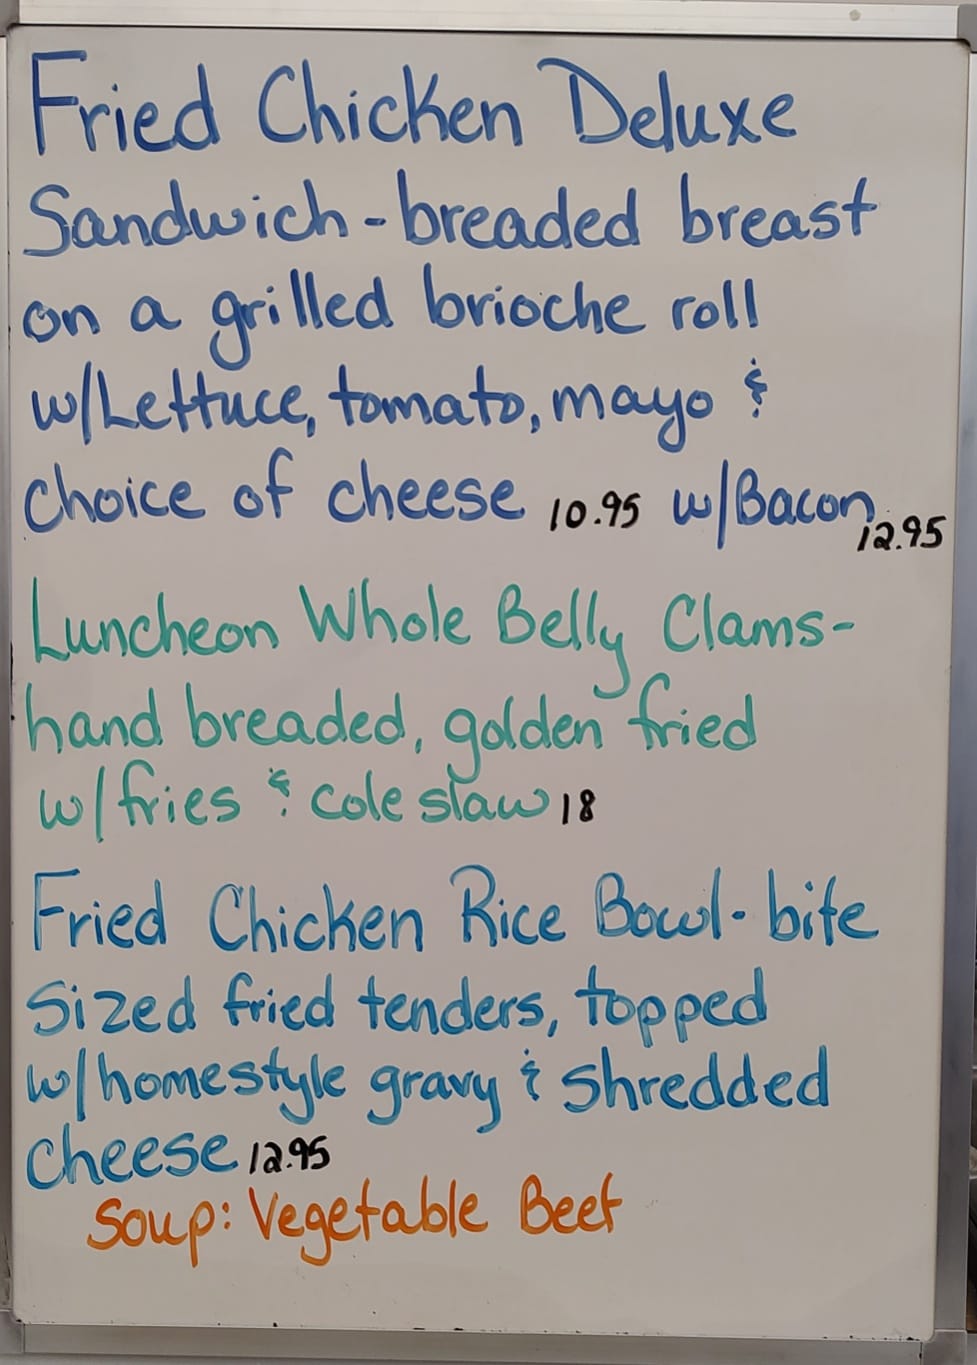 Fried Chicken Deluxe
Sandwich - breaded breast
on a grilled brioche roll
w/Lettuce, tomato, mayo &
choice of cheese 10.95 w/Bacon 12.95
Luncheon Whole Belly Clams -
hand breaded, golden fried
w/fries & cole slaw 18
Fried Chicken Rice Bowl - bite
sized fried tenders, topped
w/homestyle gravy & shredded
cheese 12.95
Soup: Vegetable Beef